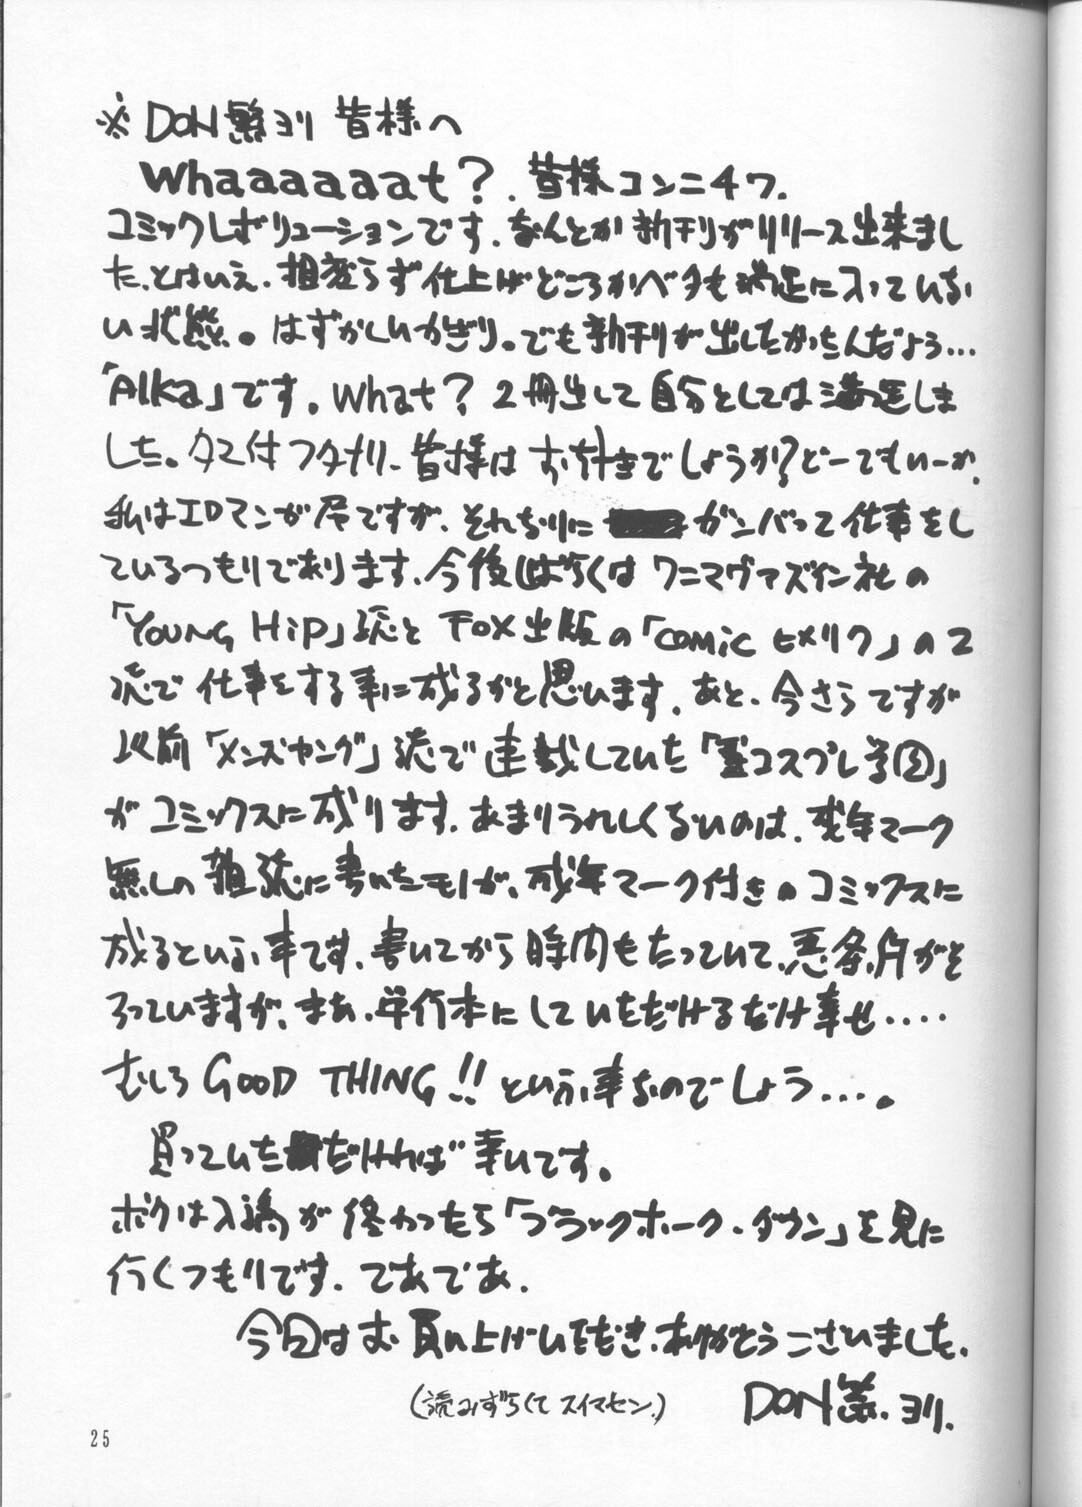 ※DON繁ヨリ 皆様へ
Whaaaaaaat?. 皆様コンニチワ.
コミックレボリューションです.なんとか新刊がリリース出来まし
た.とはいえ.相変らず仕上げどころかベタも満足に入っていな
い状態。はずかしいかぎり。でも新刊が出したかったんだよう…
「Alka」です。What? 2冊出して自分としては満足しま
した。タマ付フタナリ.皆様はお好きでしょうか?どーでもいーか.
私はエロマンガ屋ですが.それなりに ガンバって仕事をし
ているつもりであります.今後しばらくはワニマガズイン社の
「YOUNG HiP」誌とFOX出版の「comic ヒメリク」の2
誌で仕事をする事に成るかと思います.あと.今さらですが
以前「メンズヤング」誌で連載していた「コスプレ学園」
がコミックスに成ります.あまりうれしくないのは.成年マーク
無しの雑誌に書いたモノが、成年マーク付きのコミックスに
成るという事です.書いてから時間もたっていて、悪条件がそ
ろっていますが、まあ.単行本にしていただけるだけ幸せ‥‥
むしろGOOD THING!!という事なのでしょう…。
買っていただければ幸いです。
ボクは入稿が終わったら「ブラックホーク・ダウン」を見に
行くつもりです.であであ.
今回はお買い上げいただき.ありがとうございました.
(読みずらくてスイマセン.)
DON繁.ヨリ.
25